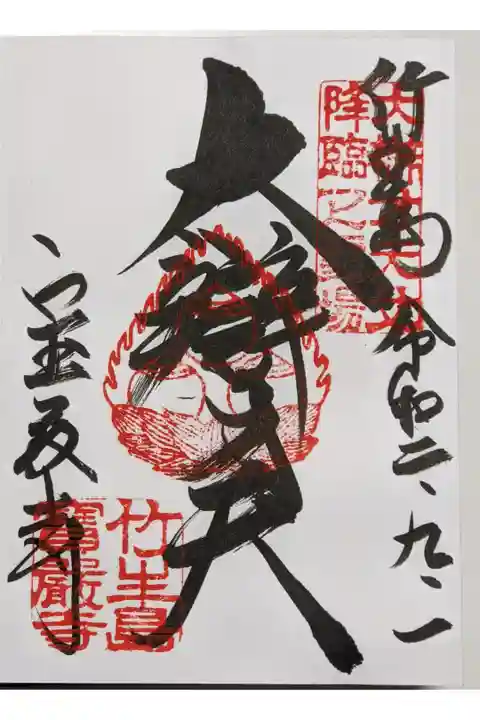 竹生島
令和二、九、一
大辯才天
宝厳寺
降臨之霊場
竹生島
寶嚴寺